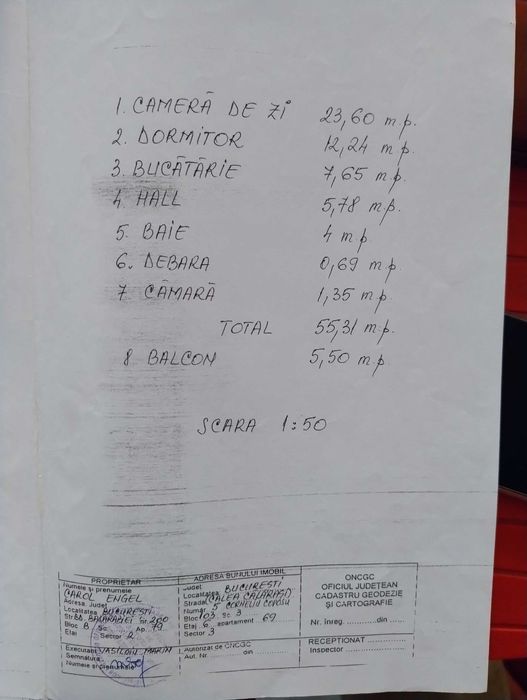 1. CAMERĂ DE ZI 23,60 m.p.
2. DORMITOR 12,24 m.p.
3. BUCĂTĂRIE 7,65 m.p.
4 HALL 5,78 m.p.
5. BAIE 4 m.p.
6. DEBARA 0,69 m.p.
7 CĂMARĂ 1,35 m.p.
TOTAL 55,31 m.p.
8 BALCON 5,50 m.p.
SCARA 1:50
PROPRIETAR
Numele şi prenumele
CAROL ENGEL
Adresa: Judeţ
Localitatea BUCUREŞTI
Str. nr. 200
Bloc B Sc. Ap. 79
Etaj Sector 2
Executant VASILOIU MARIN
Semnătura
Numele şi prenumele
ADRESA BUNULUI IMOBIL
Judeţ BUCUREŞTI
Localitatea
Strada CALEA CĂLĂRAŞI
Număr 5 CORNELIU COPOSU
Bloc 103 Sc 3
Etaj 6 apartament 69
Sector 3
Autorizat de CNCGC
Aut. Nr. din
ONCGC
OFICIUL JUDEŢEAN
CADASTRU GEODEZIE
ŞI CARTOGRAFIE
Nr. înreg. ............din ......
RECEPŢIONAT
Inspector